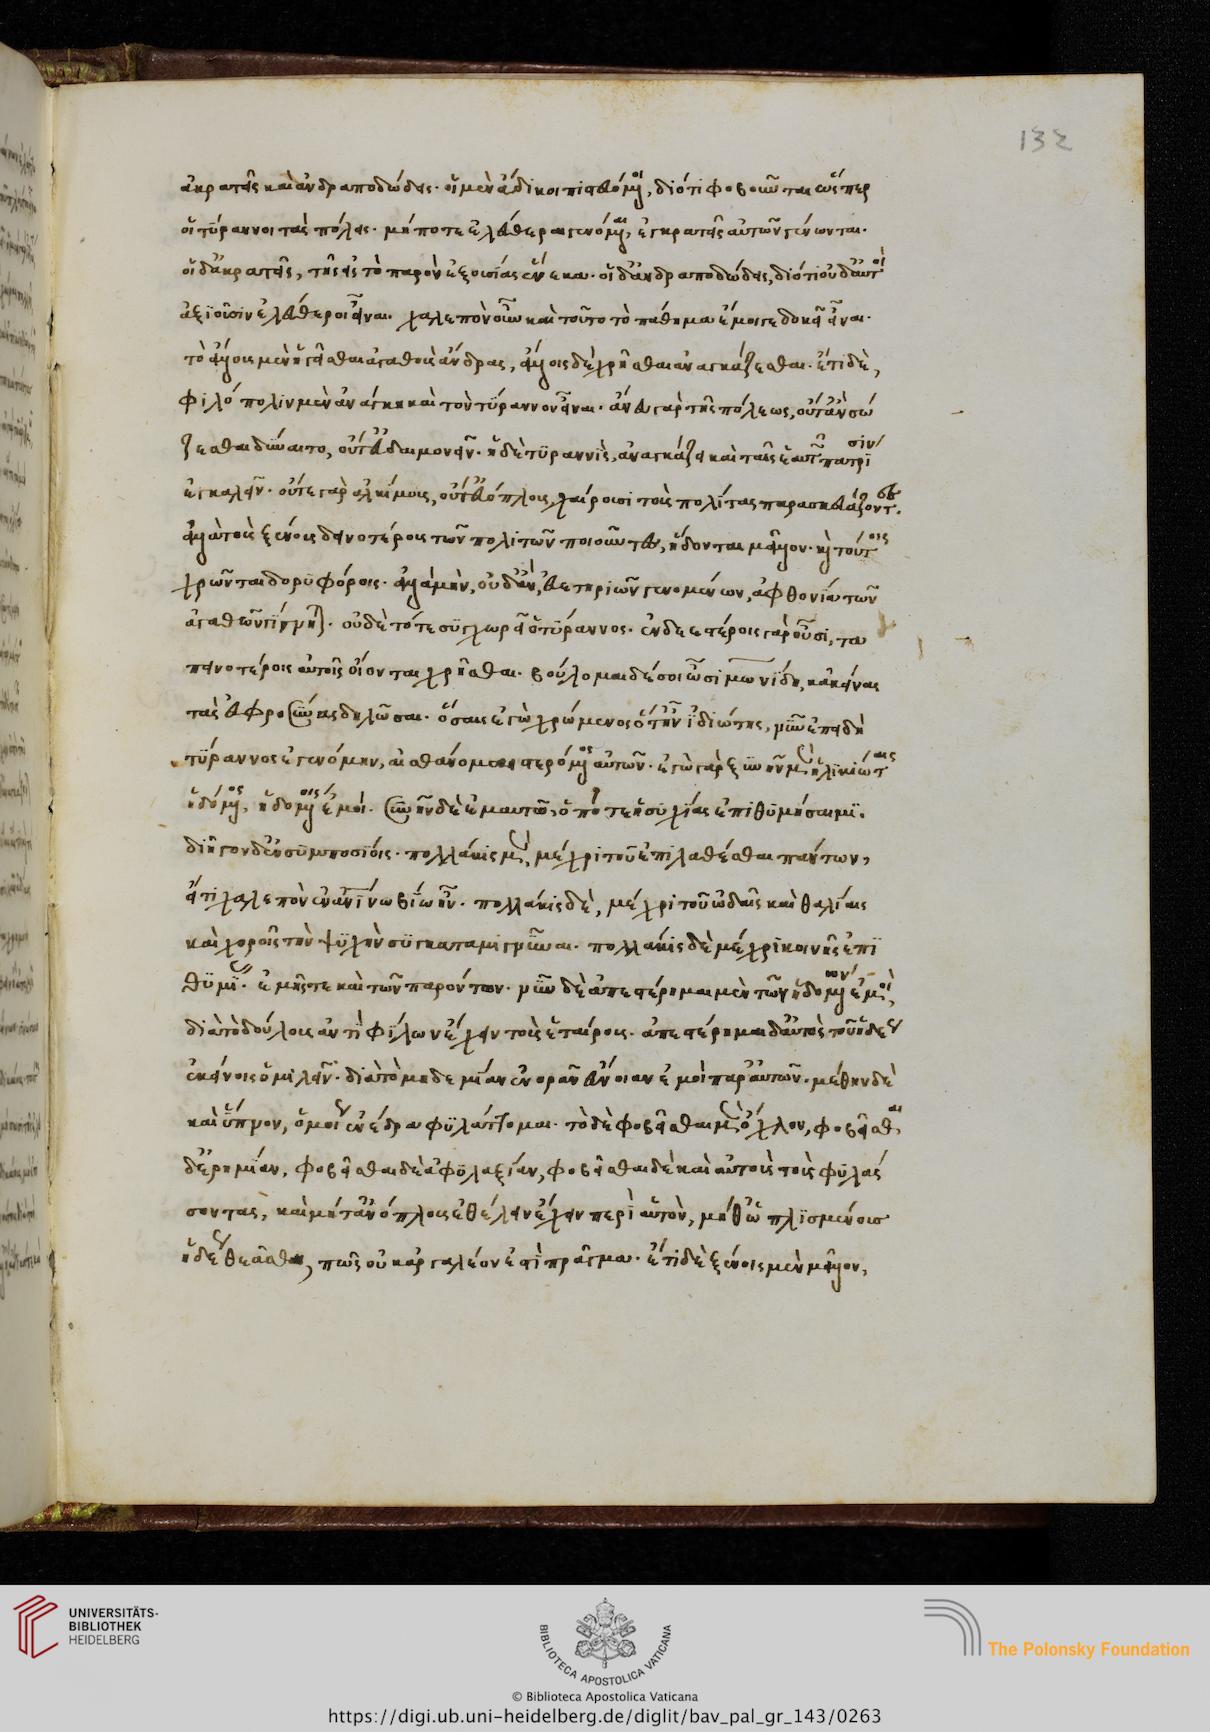 ἀκρατεῖς καὶ ἀνδραποδώδεις· οἱ μὲν ἄδικοι πιστευόμενοι, διότι φοβοῦνται ὥσπερ
οἱ τύραννοι τὰς πόλεις· μήποτε ἐλεύθεραι γενόμεναι, ἐγκρατεῖς αὐτῶν γένωνται·
οἱ δ' ἀκρατεῖς, τῆς εἰς τὸ παρὸν ἐξουσίας ἕνεκα· οἱ δ' ἀνδραποδώδεις, διότι οὐδ' αὐτοὶ
ἀξιοῦσιν ἐλεύθεροι εἶναι· χαλεπὸν οὖν καὶ τοῦτο τὸ πάθημα ἔμοιγε δοκεῖ εἶναι·
τὸ ἄλλους μὲν ἡγεῖσθαι ἀγαθοὺς ἄνδρας, ἄλλοις δὲ χρῆσθαι ἀναγκάζεσθαι· ἔτι δὲ,
φιλόπολιν μὲν ἀνάγκη καὶ τὸν τύραννον εἶναι· ἄνευ γὰρ τῆς πόλεως, οὔτ' ἂν σώ
ζεσθαι δύναιτο, οὔτ' εὐδαιμονεῖν· ἡ δὲ τυραννὶς, ἀναγκάζει καὶ ταῖς ἑαυτῶν πατρίσιν
ἐγκαλεῖν· οὔτε γὰρ ἀλκίμους, οὔτ' εὐόπλους χαίρουσι τοὺς πολίτας παρασκευάζοντες·
ἀλλὰ τοὺς ξένους δεινοτέρους τῶν πολιτῶν ποιοῦντες, ἥδονται μᾶλλον· καὶ τούτοις
χρῶνται δορυφόροις· ἀλλὰ μὴν, οὐδ' ἂν, εὐετηριῶν γενομένων, ἀφθονία τῶν
ἀγαθῶν γίγνηται· οὐδὲ τότε συγχωρεῖ ὁ τύραννος· ἐνδεεστέροις γὰρ οὖσι, τα
πεινοτέροις αὐτοῖς οἴονται χρῆσθαι· βούλομαι δέ σοι ὦ σιμωνίδη, κἀκείνας
τὰς εὐφροσύνας δηλῶσαι· ὅσαις ἐγὼ χρώμενος ὅτ' ἦν ἰδιώτης, νῦν ἐπειδὴ
τύραννος ἐγενόμην, αἰσθάνομαι στερόμενος αὐτῶν· ἐγὼ γὰρ ξυνῆν μὲν ἡλικιώταις
ἡδόμενος, ἡδομένοις ἐμοί· συνῆν δὲ ἐμαυτῶ, ὁπότε ἡσυχίας ἐπιθυμήσαιμι·
διῆγον δ' ἐν συμποσίοις· πολλάκις μὲν, μέχρι τοῦ ἐπιλαθέσθαι πάντων,
εἴ τι χαλεπὸν ἐν ἀνθρωπίνω βίω ἦν· πολλάκις δὲ, μέχρι τοῦ ὠδαῖς καὶ θαλίαις
καὶ χοροῖς τὴν ψυχὴν συγκαταμιγνῦναι· πολλάκις δὲ μέχρι κοινῆς ἐπι
θυμίας· ἐμῆς τε καὶ τῶν παρόντων· νῦν δὲ ἀπεστέρημαι μὲν τῶν ἡδομένων ἐμοὶ,
διὰ τὸ δούλους ἀντὶ φίλων ἔχειν τοὺς ἑταίρους· ἀπεστέρημαι δ' αὐτὸς τοῦ ἡδέως
ἐκείνοις ὁμιλεῖν· διὰ τὸ μηδεμίαν ἐνορᾶν εὔνοιαν ἐμοὶ παρ' αὐτῶν· μέθην δὲ
καὶ ὕπνον, ὁμοίως ἐνέδρα φυλάττομαι· τὸ δὲ φοβεῖσθαι μὲν ὄχλον, φοβεῖσθαι
δ' ἐρημίαν, φοβεῖσθαι δὲ ἀφυλαξίαν, φοβεῖσθαι δὲ καὶ αὐτοὺς τοὺς φυλάσ
σοντας, καὶ μήτ' ἀνόπλους ἐθέλειν ἔχειν περὶ αὑτὸν, μήθ' ὡπλισμένους
ἡδέως θεᾶσθαι, πῶς οὐκ ἀργαλέον ἐστὶ πρᾶγμα· ἔτι δὲ ξένοις μὲν μᾶλλον,
132
UNIVERSITÄTS-
BIBLIOTHEK
HEIDELBERG
BIBLIOTECA APOSTOLICA VATICANA
The Polonsky Foundation
© Biblioteca Apostolica Vaticana
https://digi.ub.uni-heidelberg.de/diglit/bav_pal_gr_143/0263